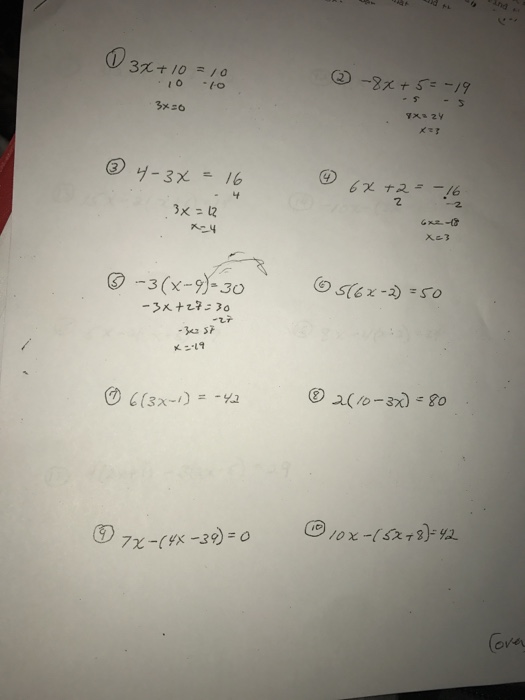 ① 3x + 10 = 10
- 10 - 10
3x = 0
② -8x + 5 = -19
- 5 - 5
8x = 24
x = 3
③ 4 - 3x = 16
- 4
3x = 12
x = -4
④ 6x + 2 = -16
2 - 2
6x = -18
x = 3
⑤ -3(x - 9) = 30
-3x + 27 = 30
-27
-3x = 57
x = -19
⑥ 5(6x - 2) = 50
⑦ 6(3x - 1) = -42
⑧ 2(10 - 3x) = 80
⑨ 7x - (4x - 39) = 0
⑩ 10x - (5x + 8) = 42
(over